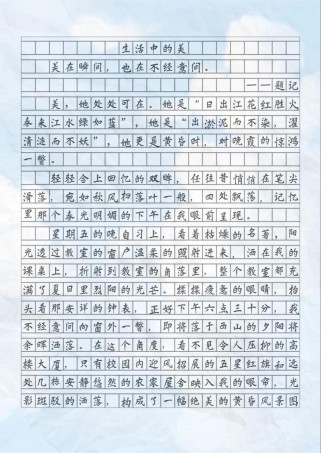 生活中的美
美在瞬间，也在不经意间。
——题记
美，她处处可在。她是“日出江花红胜火
春来江水绿如蓝”，她是“出淤泥而不染，濯
清涟而不妖”，她更是黄昏时，对晚霞的惊鸿
一瞥。
轻轻合上回忆的双眸，任往昔悄悄在笔尖
滑落，宛如秋风扫落叶一般，四处飘荡，记忆
里那个春光明媚的下午在我眼前呈现。
星期五的晚自习上，看着枯燥的名著，阳
光透过教室的窗户温柔的照射进来，洒在我的
课桌上，折射到教室的角落里，整个教室都充
满了夏日里烈阳的光芒。揉揉疲惫的眼睛，抬
头看那安详的钟表，正好下午六点三十分，我
不经意间向窗外一瞥，即将落于西山的夕阳将
余晖洒落。在这个角度，看不见令人压抑的高
楼大厦，只有校园内迎风招展的五星红旗和远
处几栋安静悠然的农家屋舍映入我的眼帘，光
影斑驳的洒落，构成了一幅绝美的黄昏风景图